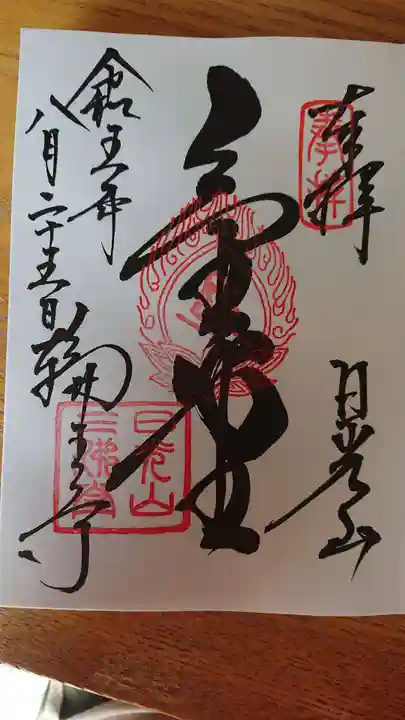 奉拝
日光山
金堂
令和五年
八月二十五日 輪王寺
日光山
三佛堂